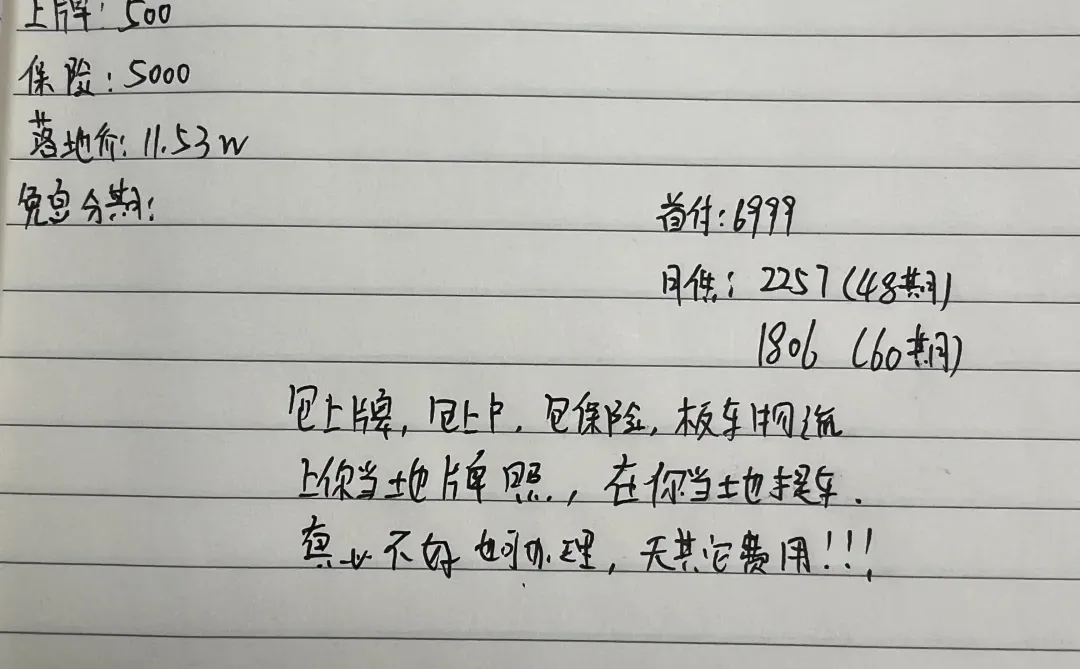 上牌：500
保险：5000
落地价：11.53w
免息分期：
首付：6999
月供：2257（48期）
1806（60期）
包上牌，包上户，包保险，板车物流
上你当地牌照，在你当地提车．
真心不好也可办理，无其它费用！！！